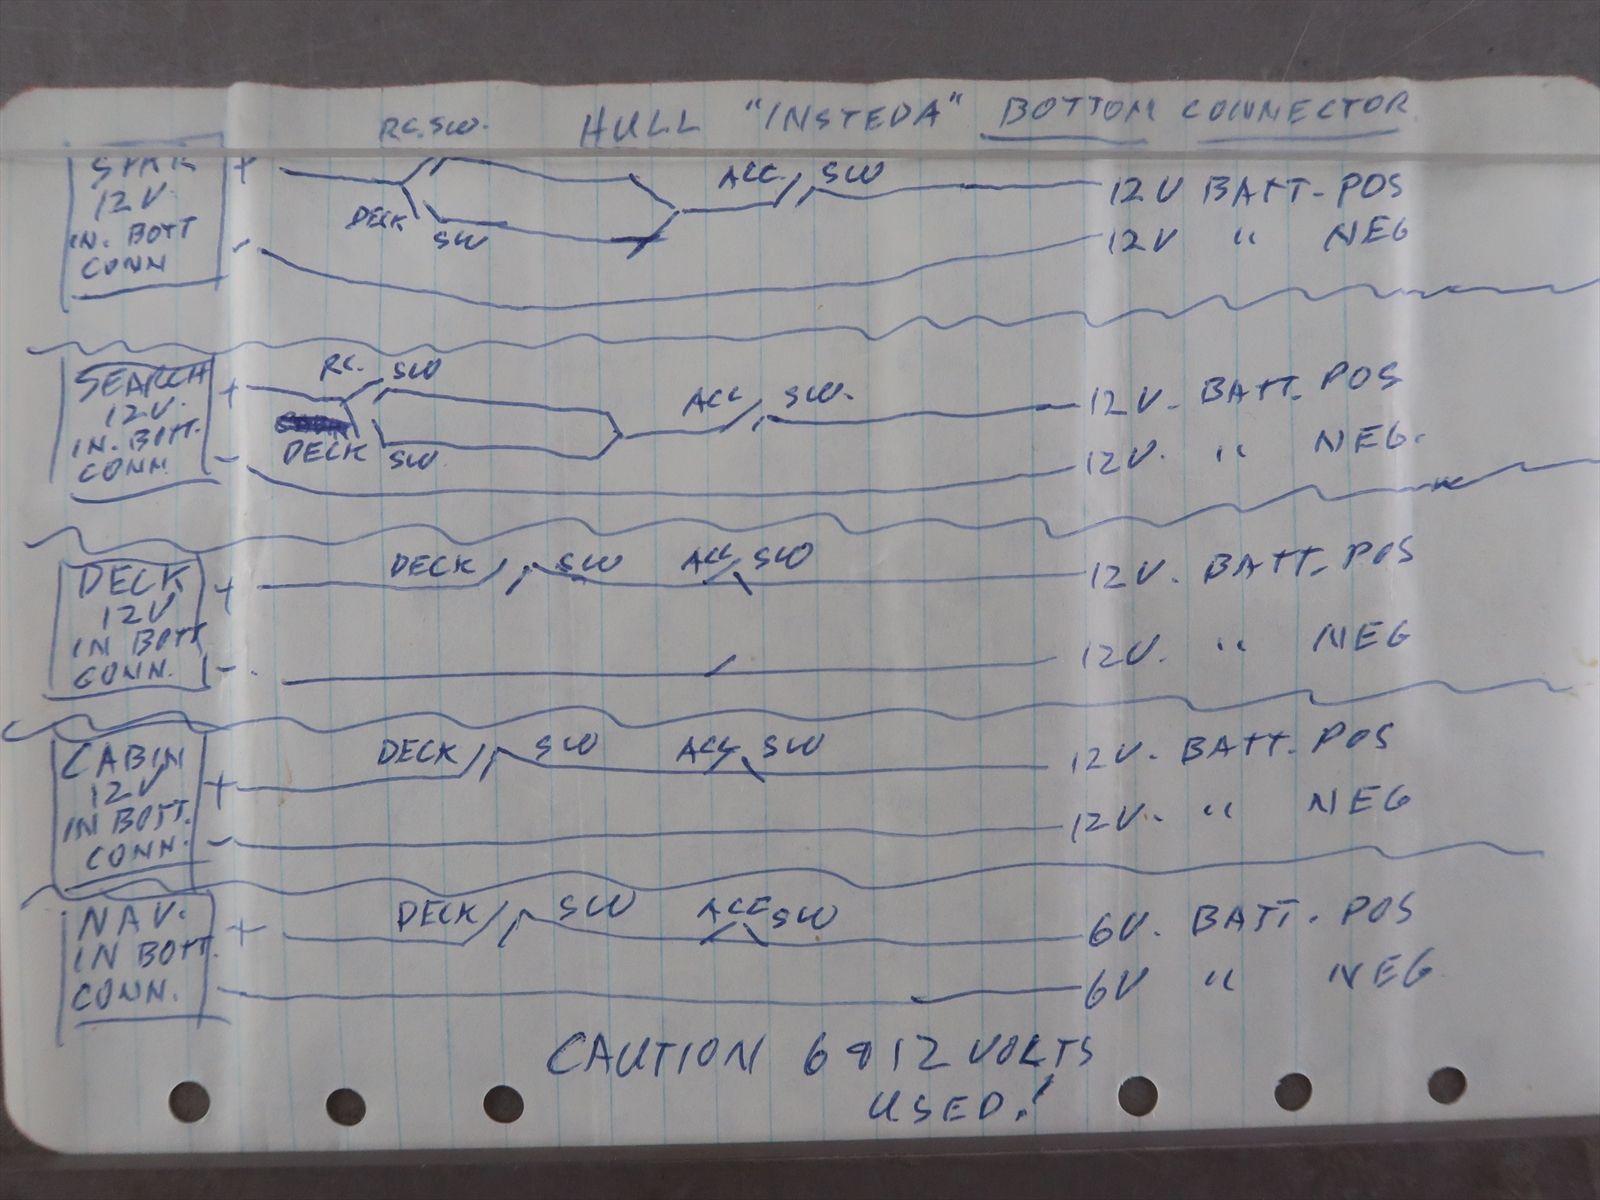 HULL "INSTEDA" BOTTOM CONNECTOR
RC. SW.
12V.
IN. BOTT
CONN
+
-
DECK
SW
ACC SW
12V BATT. POS
12V " NEG
SEARCH
12V.
IN. BOTT.
CONN.
+
-
RC. SW
DECK SW
ACC SW.
12V. BATT. POS
12V. " NEG.
DECK
12V
IN BOTT
CONN.
+
-
DECK SW
ACC SW
12V. BATT. POS
12V. " NEG
CABIN
12V
IN BOTT.
CONN.
+
-
DECK SW
ACC SW
12V. BATT. POS
12V. " NEG
NAV.
IN BOTT.
CONN.
+
-
DECK SW
ACC SW
6V. BATT. POS
6V " NEG
CAUTION 6 & 12 VOLTS
USED!